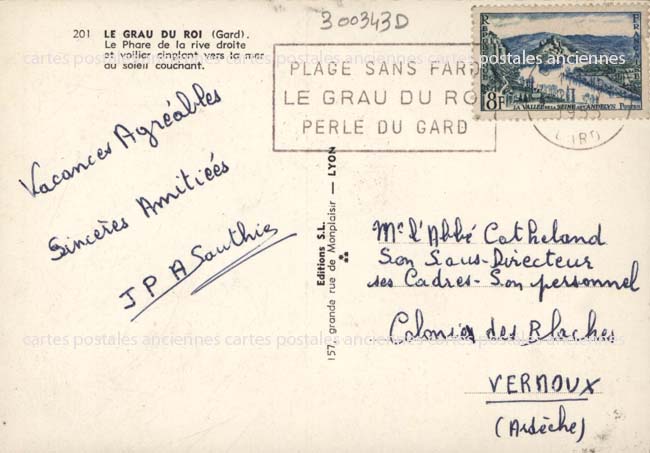 300343D
201 LE GRAU DU ROI (Gard).
Le Phare de la rive droite
et voilier cinglant vers la mer
au soleil couchant.
PLAGE SANS FARD
LE GRAU DU ROI
PERLE DU GARD
8F
LA VALLÉE DE LA SEINE AUX ANDELYS
POSTES
1955
GARD
Vacances Agréables
Sincères Amitiées
J P A Southie
Editions S.L.
157, grande rue de Monplaisir — LYON
Mr l'Abbé Catheland
Son Sous-Directeur
ses Cadres - Son personnel
Colonies des Blaches
VERNOUX
(Ardèche)
cartes postales anciennes cartes postales anciennes cartes postales anciennes